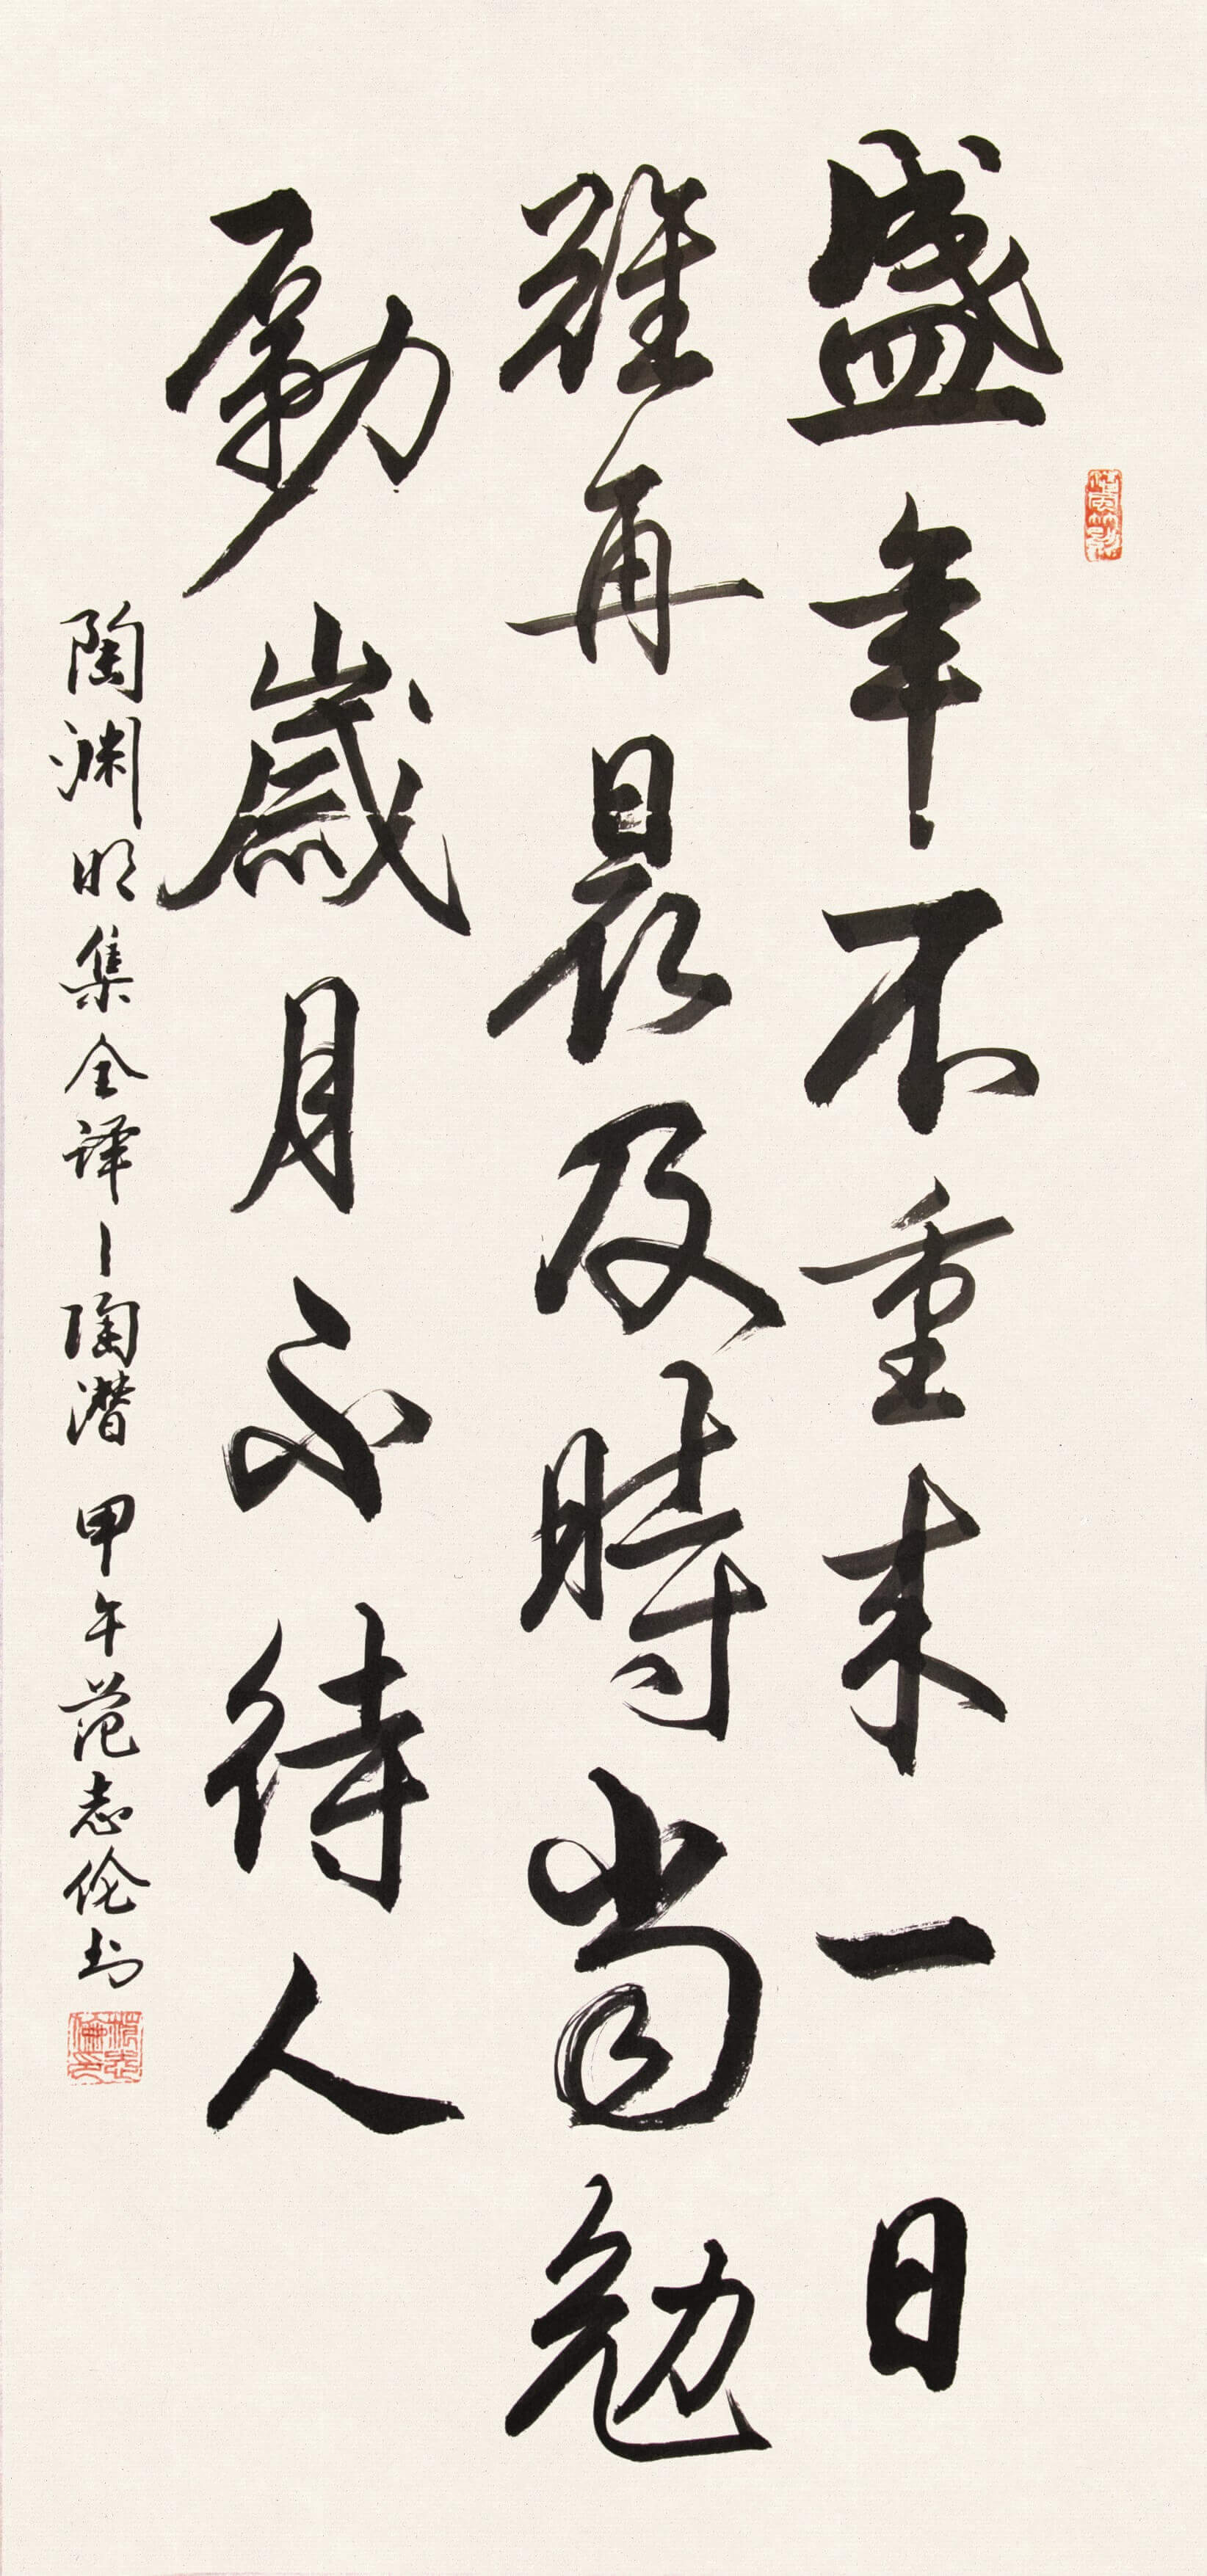 盛年不重来一日
難再晨及時當勉
勵歲月不待人
陶渊明集全译—陶潜 甲午范志伦书